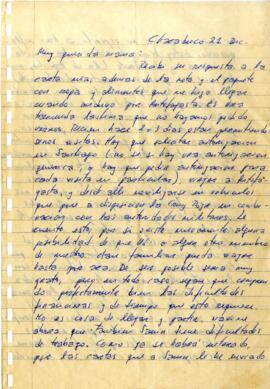 Chacabuco 21 Dic.
Muy querida mamá:
Recibí su respuesta a la
carta mía, además de la nota y el paquete
con ropa y alimentos que me dejó llegar
cuando anduvo por Antofagasta. Es una
tremenda lástima que no hayamos podido
vernos. Recién hace 2 o 3 días están permitiendo
unas visitas. Hay que solicitar autorización
en Santiago (no sé si hay una autorización
y hay que pedir autorización para
cada visita en particular) viajar a Antofa-
gasta, y desde allí movilizarse en vehículo
que pone a disposición
con las autoridades militares. Le
cuento esto, por si existe realmente alguna
posibilidad de que Ud. o algún otro miembro
de nuestro gran familión pueda viajar
hasta por acá. De ser posible sería muy
grato, pero en todo caso, sepan que comprendo
perfectamente bien las dificultades
financieras y de tiempo que esto requiere.
No es cosa de llegar y partir,
ahora que también tiene dificultades
de trabajo. Como ya se habrá enterado,
por las cartas que a le he enviado